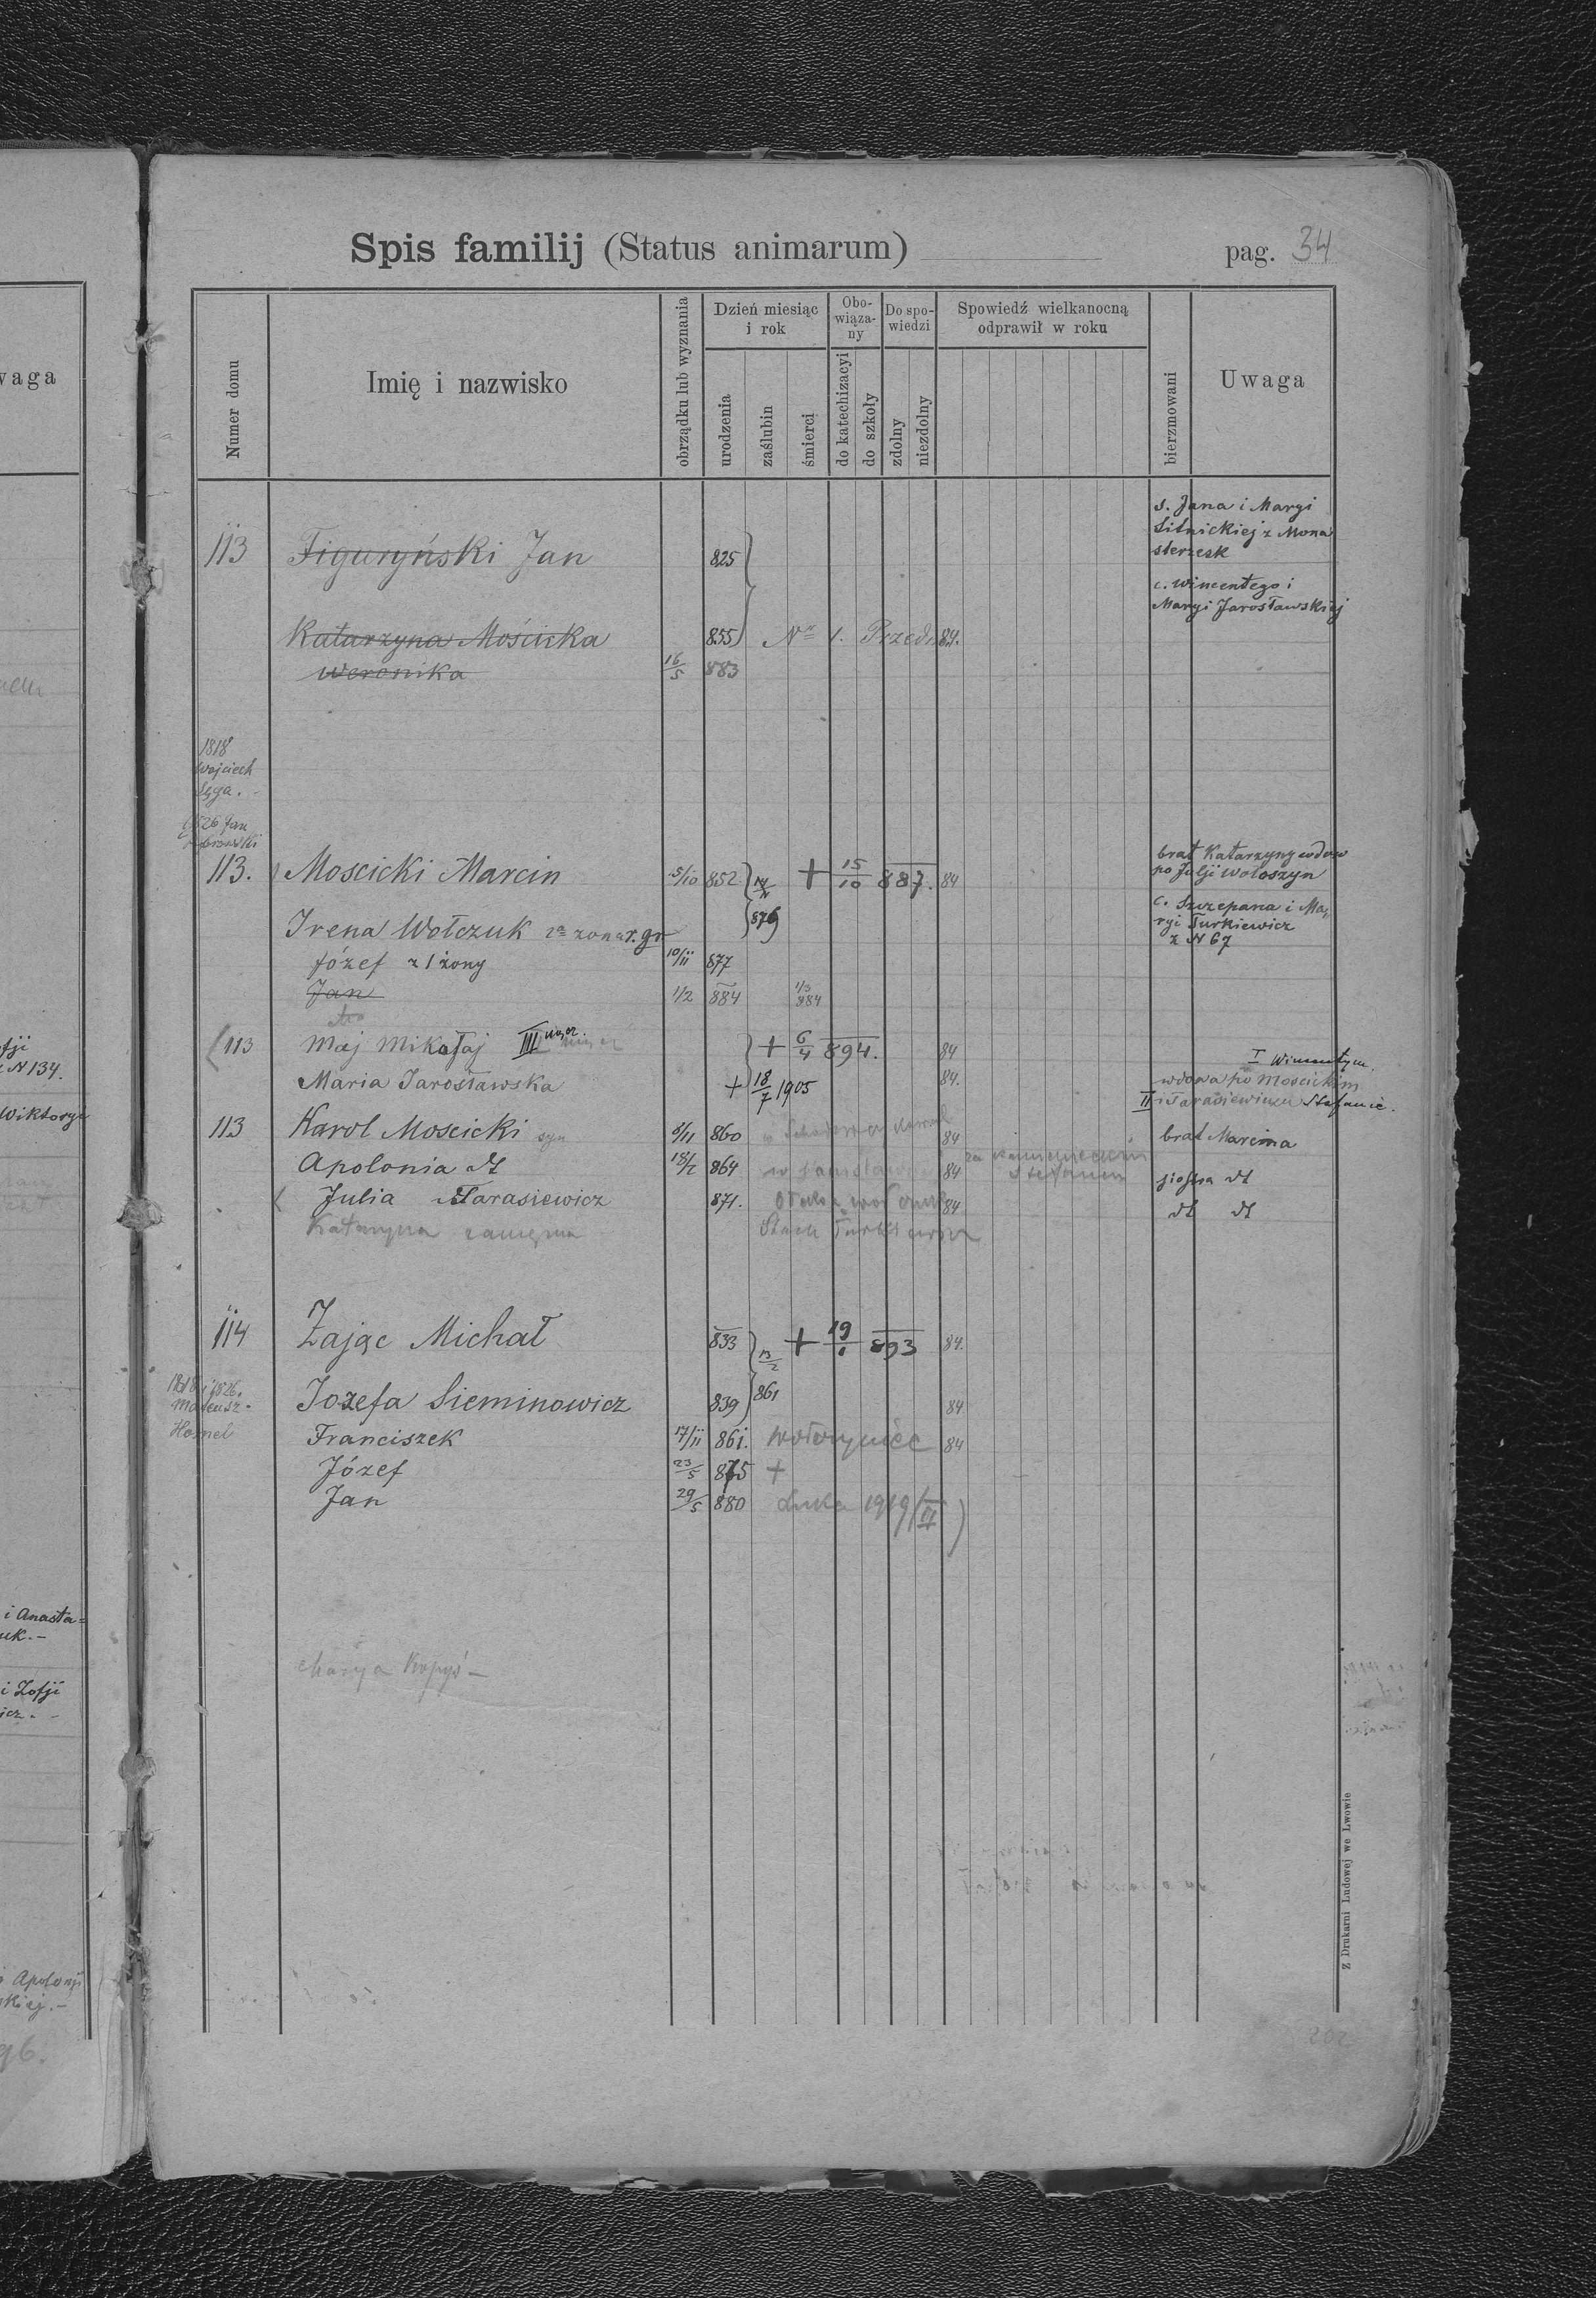 Spis familij (Status animarum) pag. 34
Numer domu
Imię i nazwisko
obrządku lub wyznania
Dzień miesiąc i rok
urodzenia
zaślubin
śmierci
Obowiąza-
ny
do katechizacyi
do szkoły
Do spo-
wiedzi
zdolny
niezdolny
Spowiedź wielkanocną
odprawił w roku
bierzmowani
Uwaga
s. Jana i Maryi
Sitnickiej z Mona
sterzesk
113 Figuryński Jan 825
c. Wincentego i
Maryi Jarosławskiej
Katarzyna Mościcka 855 Nr 1. Przedm 84.
Weronika 16/5 883
1818
Wojciech
Sęga.
1826 Jan
113. Moscicki Marcin 5/10 852 + 15/10 887. 84
brat Katarzyny wdow
po Julji Wołoszyn
876
Irena Wołczuk 2a żona r. gr
c. Szczepana i Ma
ryi Turkiewicz
z N 67
Józef z 1 żony 10/11 877
Jan 1/2 884 1/3 884
113 Maj Mikołaj III mąż + 6/4 894. 84
I Wincentym
Maria Jarosławska + 18/7 1905 84.
wdowa po Moscickim
II i Tarasiewiczu Stefanie.
113 Karol Moscicki syn 8/11 860 84 brat Marcina
Apolonia dt 18/2 864 84 siostra dt
Julia Tarasiewicz 871. 84 dt dt
Katarzyna zamężna
114 Zając Michał 833 + 19/1 893 84.
13/2
861
1818 i 1826.
Mateusz
Hornel
Jozefa Sieminowicz 839 84
Franciszek 17/11 861. Wołczyniec 84
Józef 23/5 875 +
Jan 29/5 880 Łuka 1919 (II)
Marya Kopyś -
Z Drukarni Ludowej we Lwowie
202
waga
N 134.
Wiktorye
i Anasta-
uk. -
i Zofji
icz. -
Apolonji
skiej. -
96.